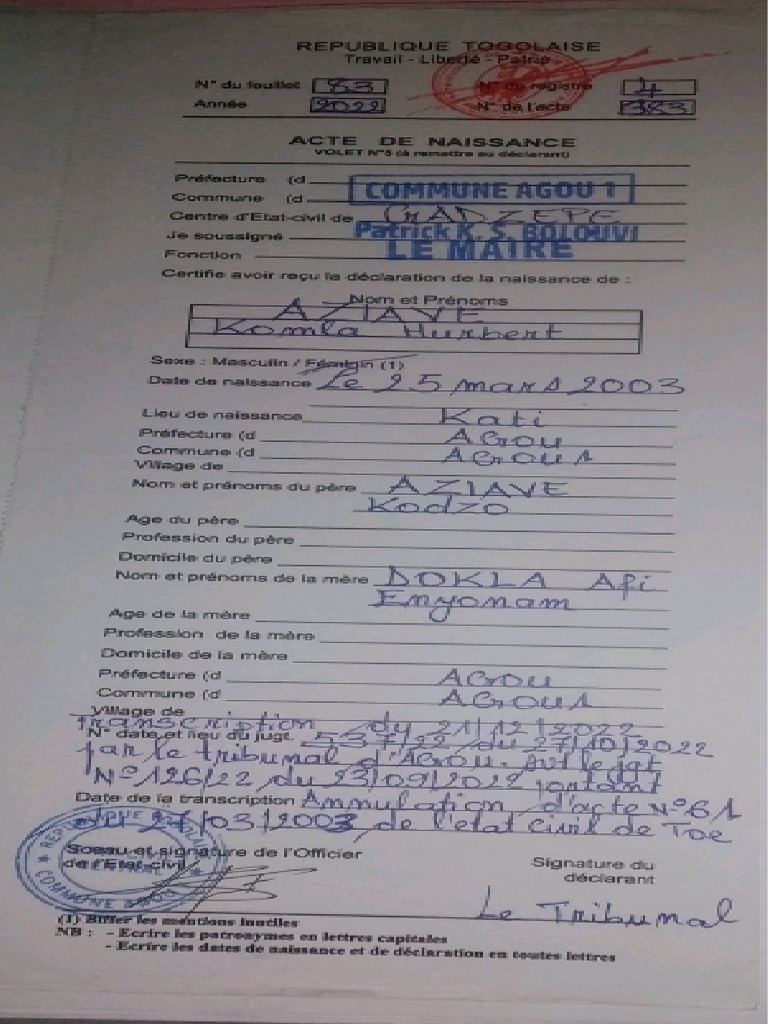 REPUBLIQUE TOGOLAISE
Travail - Liberté - Patrie
N° du feuillet 83 N° du registre 4
Année 2022 N° de l'acte 383
ACTE DE NAISSANCE
VOLET N°5 (à remettre au déclarant)
Préfecture (d
COMMUNE AGOU 1
Commune (d
Centre d'Etat-civil de GADZEPE
Je soussigné Patrick K. S. BOLOUVI
Fonction LE MAIRE
Certifie avoir reçu la déclaration de la naissance de :
Nom et Prénoms
AZIAVE
Komla Hurbert
Sexe : Masculin / Féminin (1)
Date de naissance Le 25 mars 2003
Lieu de naissance Kati
Préfecture (d AGOU
Commune (d AGOU1
Village de
Nom et prénoms du père AZIAVE
Kodzo
Age du père
Profession du père
Domicile du père
Nom et prénoms de la mère DOKLA Afi
Enyonam
Age de la mère
Profession de la mère
Domicile de la mère
Préfecture (d AGOU
Commune (d AGOU1
Village de
Transcription du 21/12/2022
N° date et lieu du jugt. 537/22 du 27/10/2022
par le tribunal d'AGOU. svt le jgt
N° 126/22 du 23/09/2022 portant
Date de la transcription Annulation d'acte N° 61
du /03/2003 de l'état civil de Toe
Sceau et signature de l'Officier
de l'Etat-civil
Signature du
déclarant
Le Tribunal
(1) Biffer les mentions inutiles
NB : - Ecrire les patronymes en lettres capitales
- Ecrire les dates de naissance et de déclaration en toutes lettres